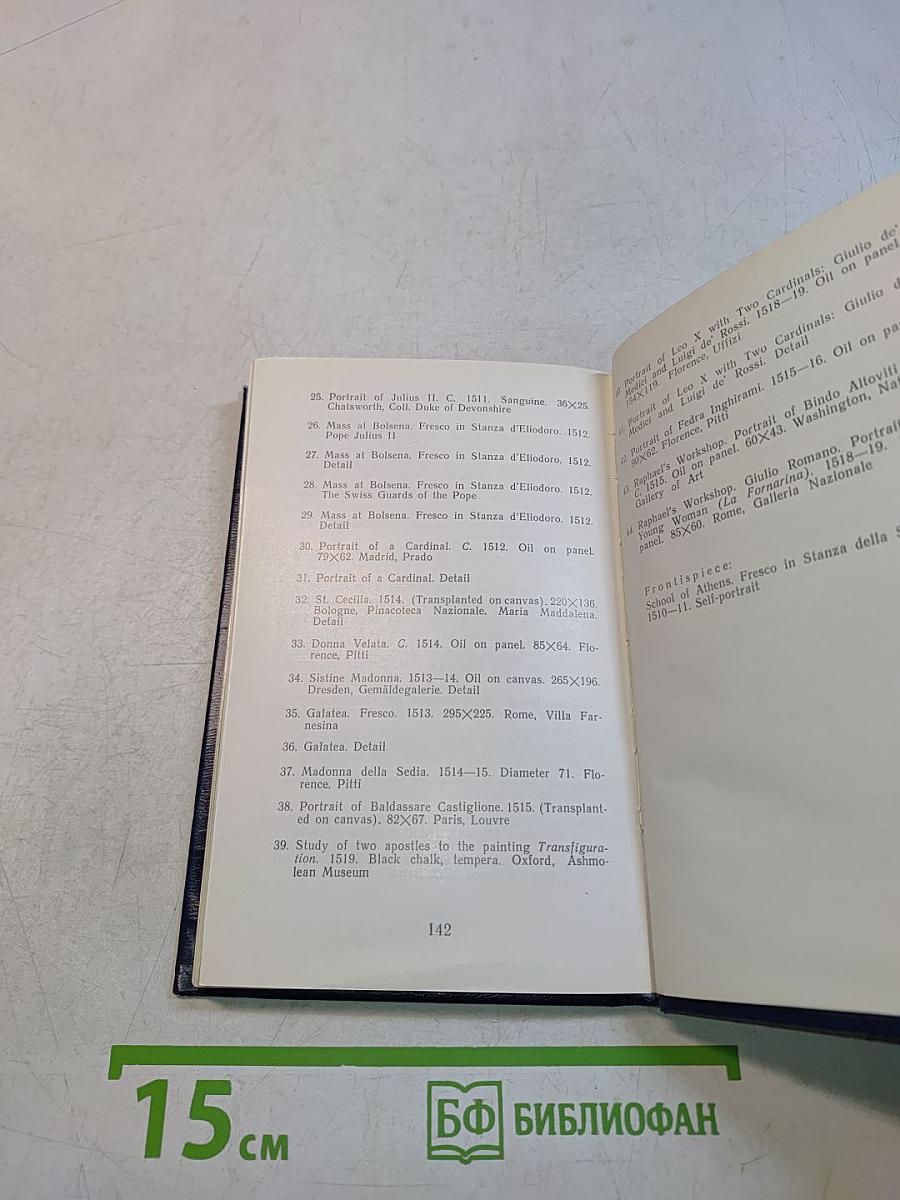 25. Portrait of Julius II. C. 1511. Sanguine. 36×25.
Chatsworth, Coll. Duke of Devonshire
26. Mass at Bolsena. Fresco in Stanza d'Eliodoro. 1512.
Pope Julius II
27. Mass at Bolsena. Fresco in Stanza d'Eliodoro. 1512.
Detail
28. Mass at Bolsena. Fresco in Stanza d'Eliodoro. 1512.
The Swiss Guards of the Pope
29. Mass at Bolsena. Fresco in Stanza d'Eliodoro. 1512.
Detail
30. Portrait of a Cardinal. C. 1512. Oil on panel.
79×62. Madrid, Prado
31. Portrait of a Cardinal. Detail
32. St. Cecilia. 1514. (Transplanted on canvas). 220×136.
Bologne, Pinacoteca Nazionale. Maria Maddalena.
Detail
33. Donna Velata. C. 1514. Oil on panel. 85×64. Flo-
rence, Pitti
34. Sistine Madonna. 1513—14. Oil on canvas. 265×196.
Dresden, Gemäldegalerie. Detail
35. Galatea. Fresco. 1513. 295×225. Rome, Villa Far-
nesina
36. Galatea. Detail
37. Madonna della Sedia. 1514—15. Diameter 71. Flo-
rence. Pitti
38. Portrait of Baldassare Castiglione. 1515. (Transplant-
ed on canvas). 82×67. Paris, Louvre
39. Study of two apostles to the painting Transfigura-
tion. 1519. Black chalk, tempera. Oxford, Ashmo-
lean Museum
142
Portrait of Leo X with Two Cardinals: Giulio de'
Medici and Luigi de' Rossi. 1518—19. Oil on panel.
154×119. Florence, Uffizi
Portrait of Leo X with Two Cardinals: Giulio
Medici and Luigi de' Rossi. Detail
42. Portrait of Fedra Inghirami. 1515—16. Oil on
90×62. Florence, Pitti
43. Raphael's Workshop. Portrait of Bindo Altoviti
C. 1515. Oil on panel. 60×43. Washington,
Gallery of Art
44. Raphael's Workshop. Giulio Romano. Portrait
Young Woman (La Fornarina). 1518—19.
panel. 85×60. Rome, Galleria Nazionale
Frontispiece:
School of Athens. Fresco in Stanza della
1510—11. Self-portrait
15 см
БФ БИБЛИОФАН